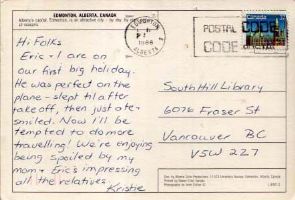 EDMONTON, ALBERTA, CANADA
EDMONTON
ALBERTA
1986
POSTAL CODE
CODE
Hi Folks
Eric + I are on
our first big holiday.
He was perfect on the
plane - slept til after
takeoff, then just ate +
smiled. Now I'll be
tempted to do more
travelling! We're enjoying
being spoiled by my
mom + Eric's impressing
all the relatives.
Kristie
South Hill Library
6076 Fraser St
Vancouver BC
V5W 2Z7